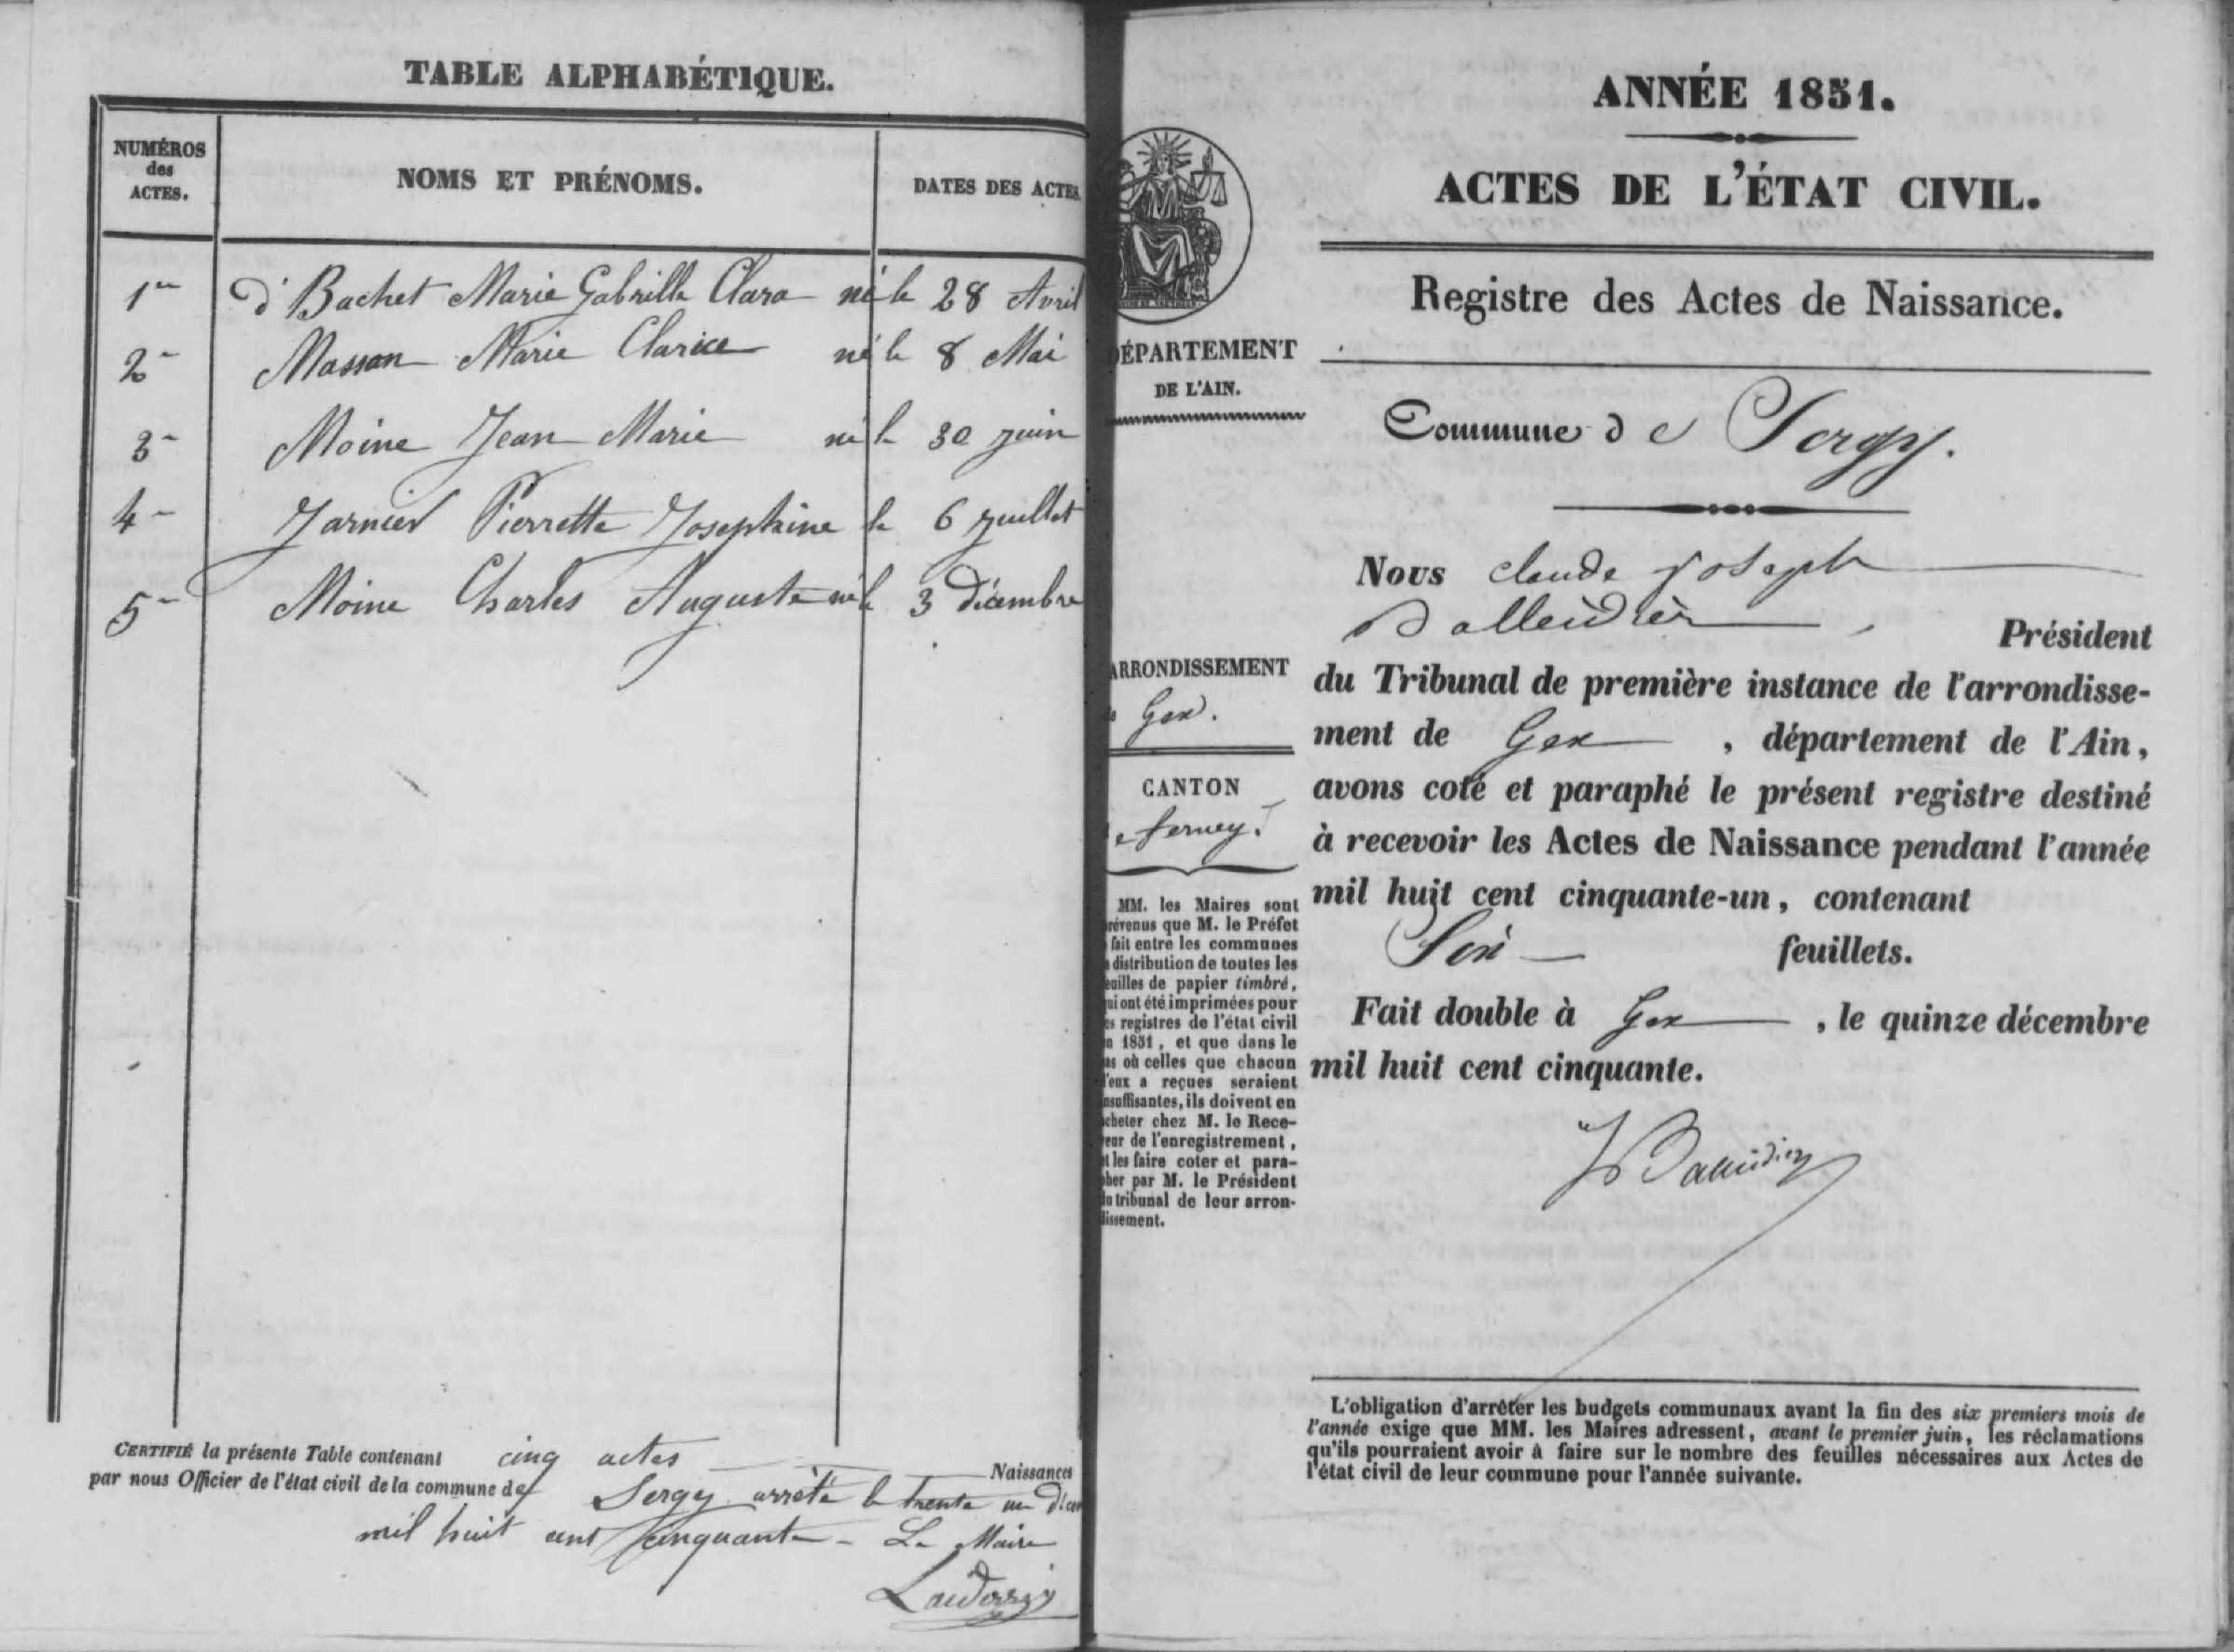 TABLE ALPHABÉTIQUE.
NUMÉROS
des
ACTES.
NOMS ET PRÉNOMS.
DATES DES ACTES
1er d'Bachet Marie Gabrille Clara né le 28 Avril
2 Masson Marie Clarice né le 8 Mai
3 Moine Jean Marie né le 30 juin
4 Jarnier Pierrette Josephine le 6 juillet
5 Moine Charles Auguste né le 3 décembre
CERTIFIÉ la présente Table contenant cinq actes Naissances
par nous Officier de l'état civil de la commune de Sergy arrêté le trente un
mil huit cent cinquante - Le Maire
ANNÉE 1851.
ACTES DE L'ÉTAT CIVIL.
Registre des Actes de Naissance.
DÉPARTEMENT
DE L'AIN.
Commune de Sergy.
ARRONDISSEMENT
Gex.
CANTON
de ferney.
MM. les Maires sont
prévenus que M. le Préfet
fait entre les communes
distribution de toutes les
feuilles de papier timbré,
qui ont été imprimées pour
les registres de l'état civil
en 1851, et que dans le
cas où celles que chacun
d'eux a reçues seraient
insuffisantes, ils doivent en
acheter chez M. le Rece-
veur de l'enregistrement,
et les faire coter et para-
pher par M. le Président
du tribunal de leur arron-
dissement.
Nous claude joseph
Président
du Tribunal de première instance de l'arrondisse-
ment de Gex, département de l'Ain,
avons coté et paraphé le présent registre destiné
à recevoir les Actes de Naissance pendant l'année
mil huit cent cinquante-un, contenant
Six feuillets.
Fait double à Gex, le quinze décembre
mil huit cent cinquante.
L'obligation d'arrêter les budgets communaux avant la fin des six premiers mois de
l'année exige que MM. les Maires adressent, avant le premier juin, les réclamations
qu'ils pourraient avoir à faire sur le nombre des feuilles nécessaires aux Actes de
l'état civil de leur commune pour l'année suivante.